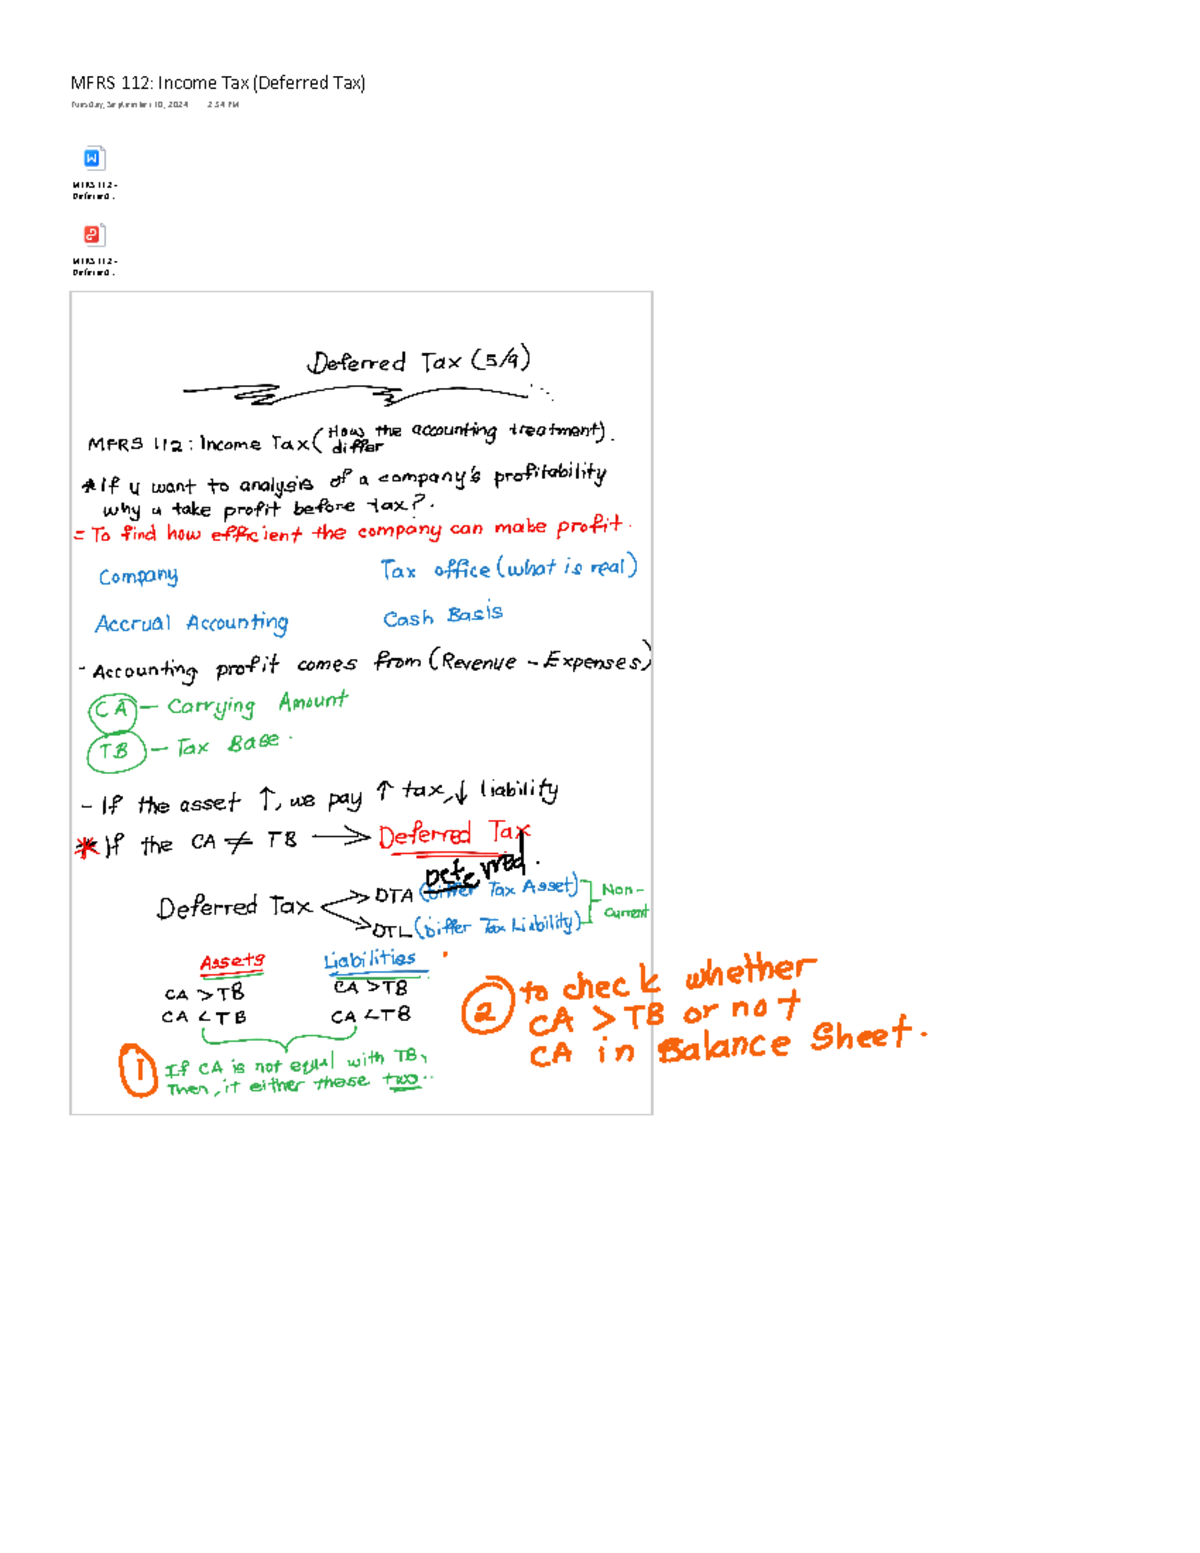 MFRS 112: Income Tax (Deferred Tax)
Tuesday, September 10, 2024 2:54 PM
MFRS 112 -
Deferred .
MFRS 112 -
Deferred .
Deferred Tax (5/9)
MFRS 112 : Income Tax ( How the accounting treatment ) .
differ
* If u want to analysis of a company's profitability
why u take profit before tax? .
= To find how efficient the company can make profit .
Company Tax office (what is real)
Accrual Accounting Cash Basis
- Accounting profit comes from (Revenue - Expenses)
CA - Carrying Amount
TB - Tax Base .
- If the asset ↑, we pay ↑ tax, ↓ liability
* If the CA ≠ TB → Deferred Tax
Deferred .
Deferred Tax → DTA (Differ Tax Asset) Non-
→ DTL (Differ Tax Liability) Current
Assets Liabilities
CA > TB CA > TB
CA < TB CA < TB
1 If CA is not equal with TB,
Then, it either these two ..
2 to check whether
CA > TB or not
CA in Balance Sheet .